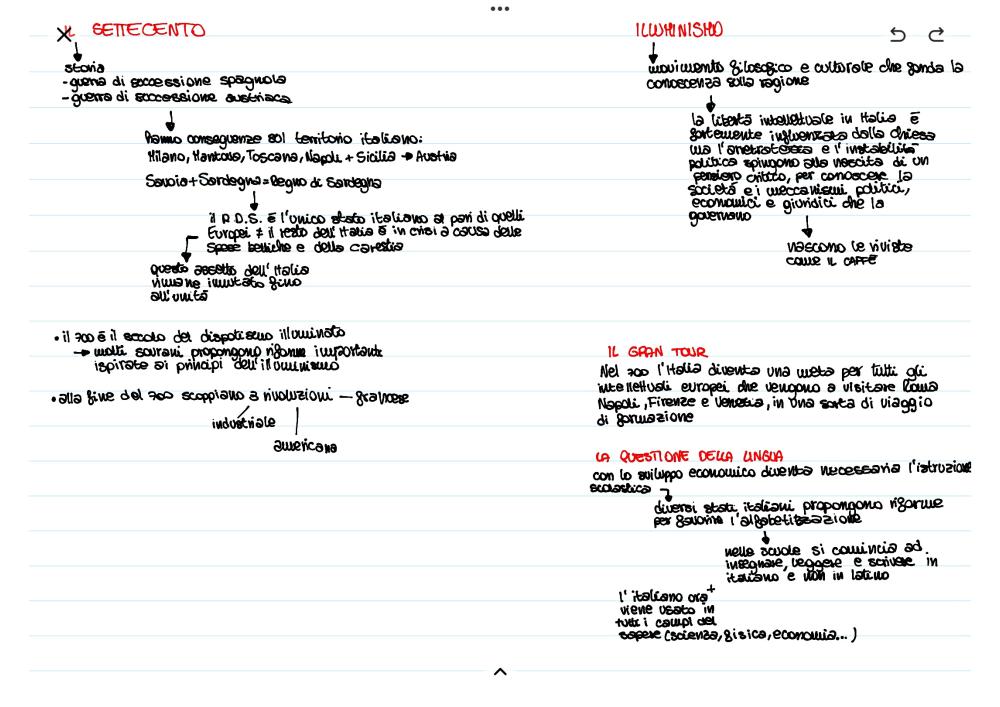 IL SETTECENTO
storia
- guerra di successione spagnola
- guerra di successione austriaca
hanno conseguenze sul territorio italiano:
Milano, Mantova, Toscana, Napoli + Sicilia → Austria
Savoia + Sardegna = Regno di Sardegna
il R.D.S. è l'unico stato italiano al pari di quelli
Europei ≠ il resto dell'Italia è in crisi a causa delle
spese belliche e della carestia
questo assetto dell'Italia
rimane immutato fino
all'unità
• il 700 è il secolo del dispotismo illuminato
→ molti sovrani propongono riforme importante
ispirate ai principi dell'illuminismo
• alla fine del 700 scoppiano 3 rivoluzioni — francese
industriale
americana
ILLUMINISMO
movimento filosofico e culturale che fonda la
conoscenza sulla ragione
la libertà intellettuale in Italia è
fortemente influenzata dalla chiesa
ma l'arretratezza e l'instabilità
politica spingono alla nascita di un
pensiero critico, per conoscere la
società e i meccanismi politici,
economici e giuridici che la
governano
nascono le riviste
come IL CAFFÈ
IL GRAN TOUR
Nel 700 l'Italia diventa una meta per tutti gli
intellettuali europei che vengono a visitare Roma
Napoli, Firenze e Venezia, in una sorta di viaggio
di formazione
LA QUESTIONE DELLA LINGUA
con lo sviluppo economico diventa necessaria l'istruzione
scolastica
diversi stati italiani propongono riforme
per favorire l'alfabetizzazione
nelle scuole si comincia ad
insegnare, leggere e scrivere in
italiano e non in latino
l'italiano ora +
viene usato in
tutti i campi del
sapere (scienza, fisica, economia...)